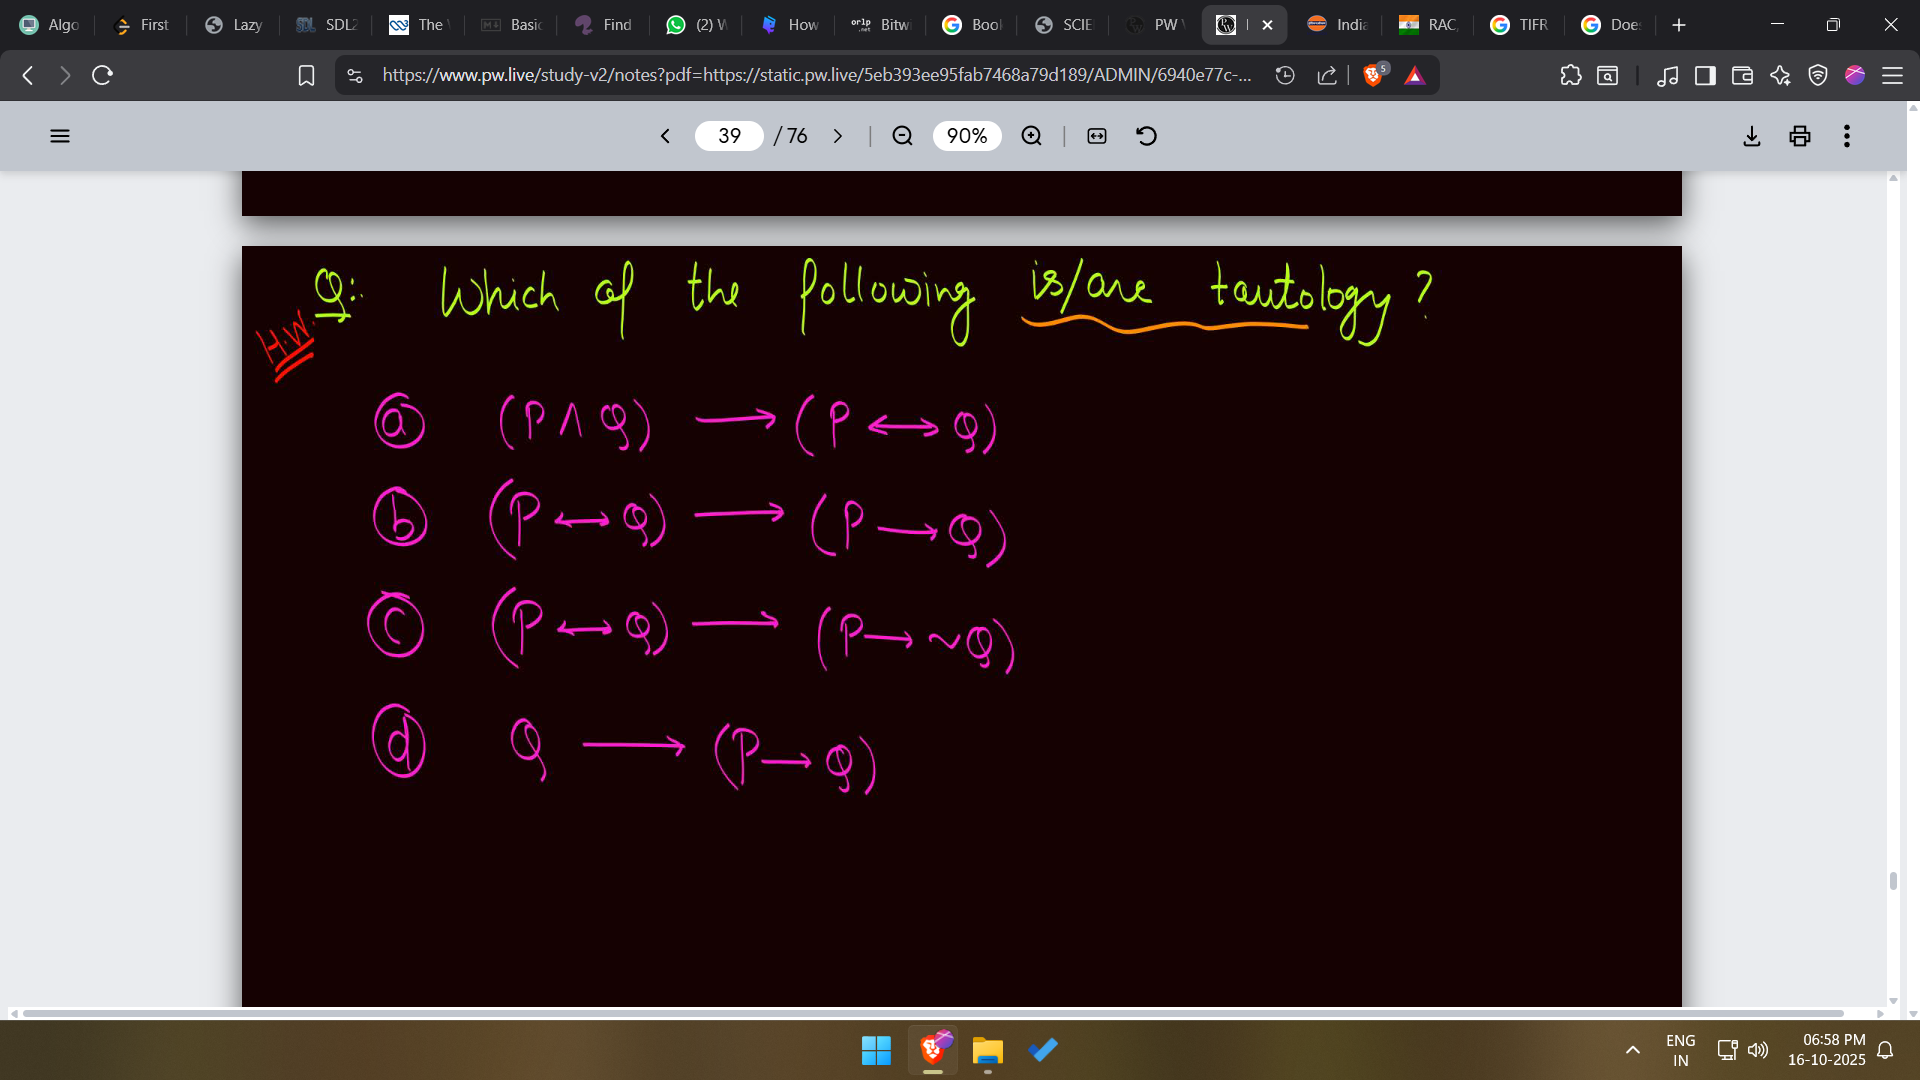 Algo First Lazy SDL2 The Basic Find (2) W How Bitwi Book SCIE PW India RAC, TIFR Does
https://www.pw.live/study-v2/notes?pdf=https://static.pw.live/5eb393ee95fab7468a79d189/ADMIN/6940e77c-... 5
39 / 76 90%
Q: Which of the following is/are tautology?
H.W.
(a) (P ∧ Q) → (P ↔ Q)
(b) (P ↔ Q) → (P → Q)
(c) (P ↔ Q) → (P → ~Q)
(d) Q → (P → Q)
ENG 06:58 PM
IN 16-10-2025